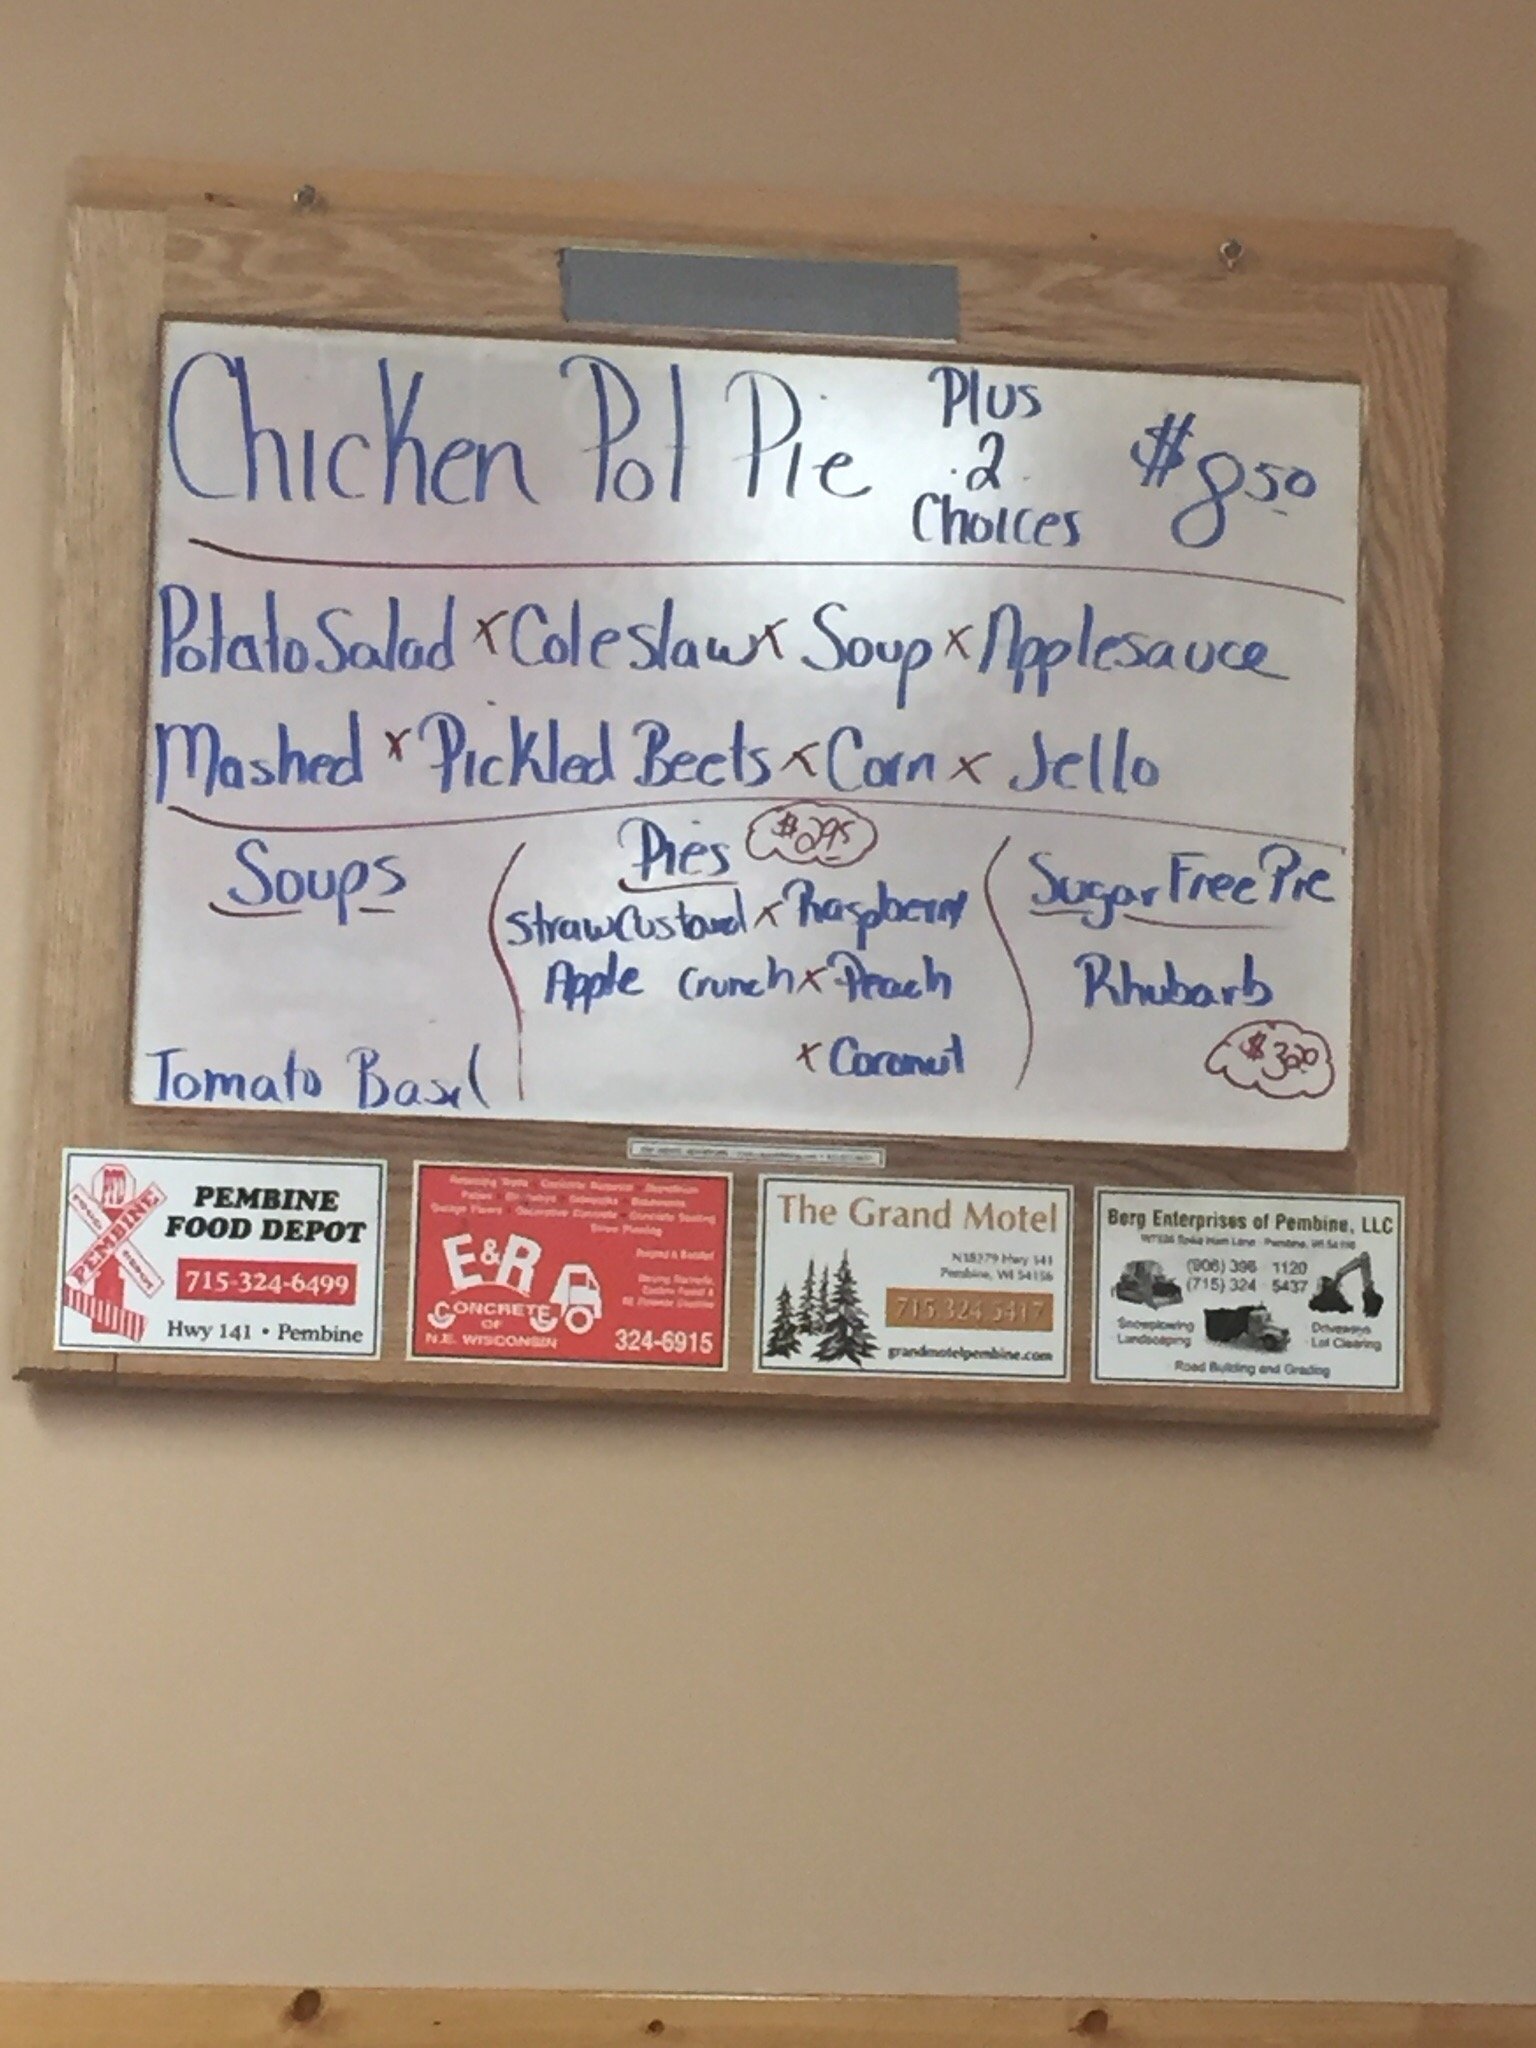 Chicken Pot Pie Plus 2 Choices $8.50
Potato Salad x Coleslaw x Soup x Applesauce
Mashed x Pickled Beets x Corn x Jello
Soups
Tomato Basil
Pies $2.95
Straw Custard x Raspberry
Apple Crunch x Peach
x Coconut
Sugar Free Pie
Rhubarb
$3.20
PEMBINE
PEMBINE
FOOD DEPOT
715-324-6499
Hwy 141 • Pembine
E&R
CONCRETE
OF
N.E. WISCONSIN
324-6915
The Grand Motel
Hwy 141
Pembine, WI 54156
715 324 5417
grandmotelpembine.com
Berg Enterprises of Pembine, LLC
(906) 396 1120
(715) 324 5437
Snowplowing
Landscaping
Driveways
Lot Clearing
Road Building and Grading